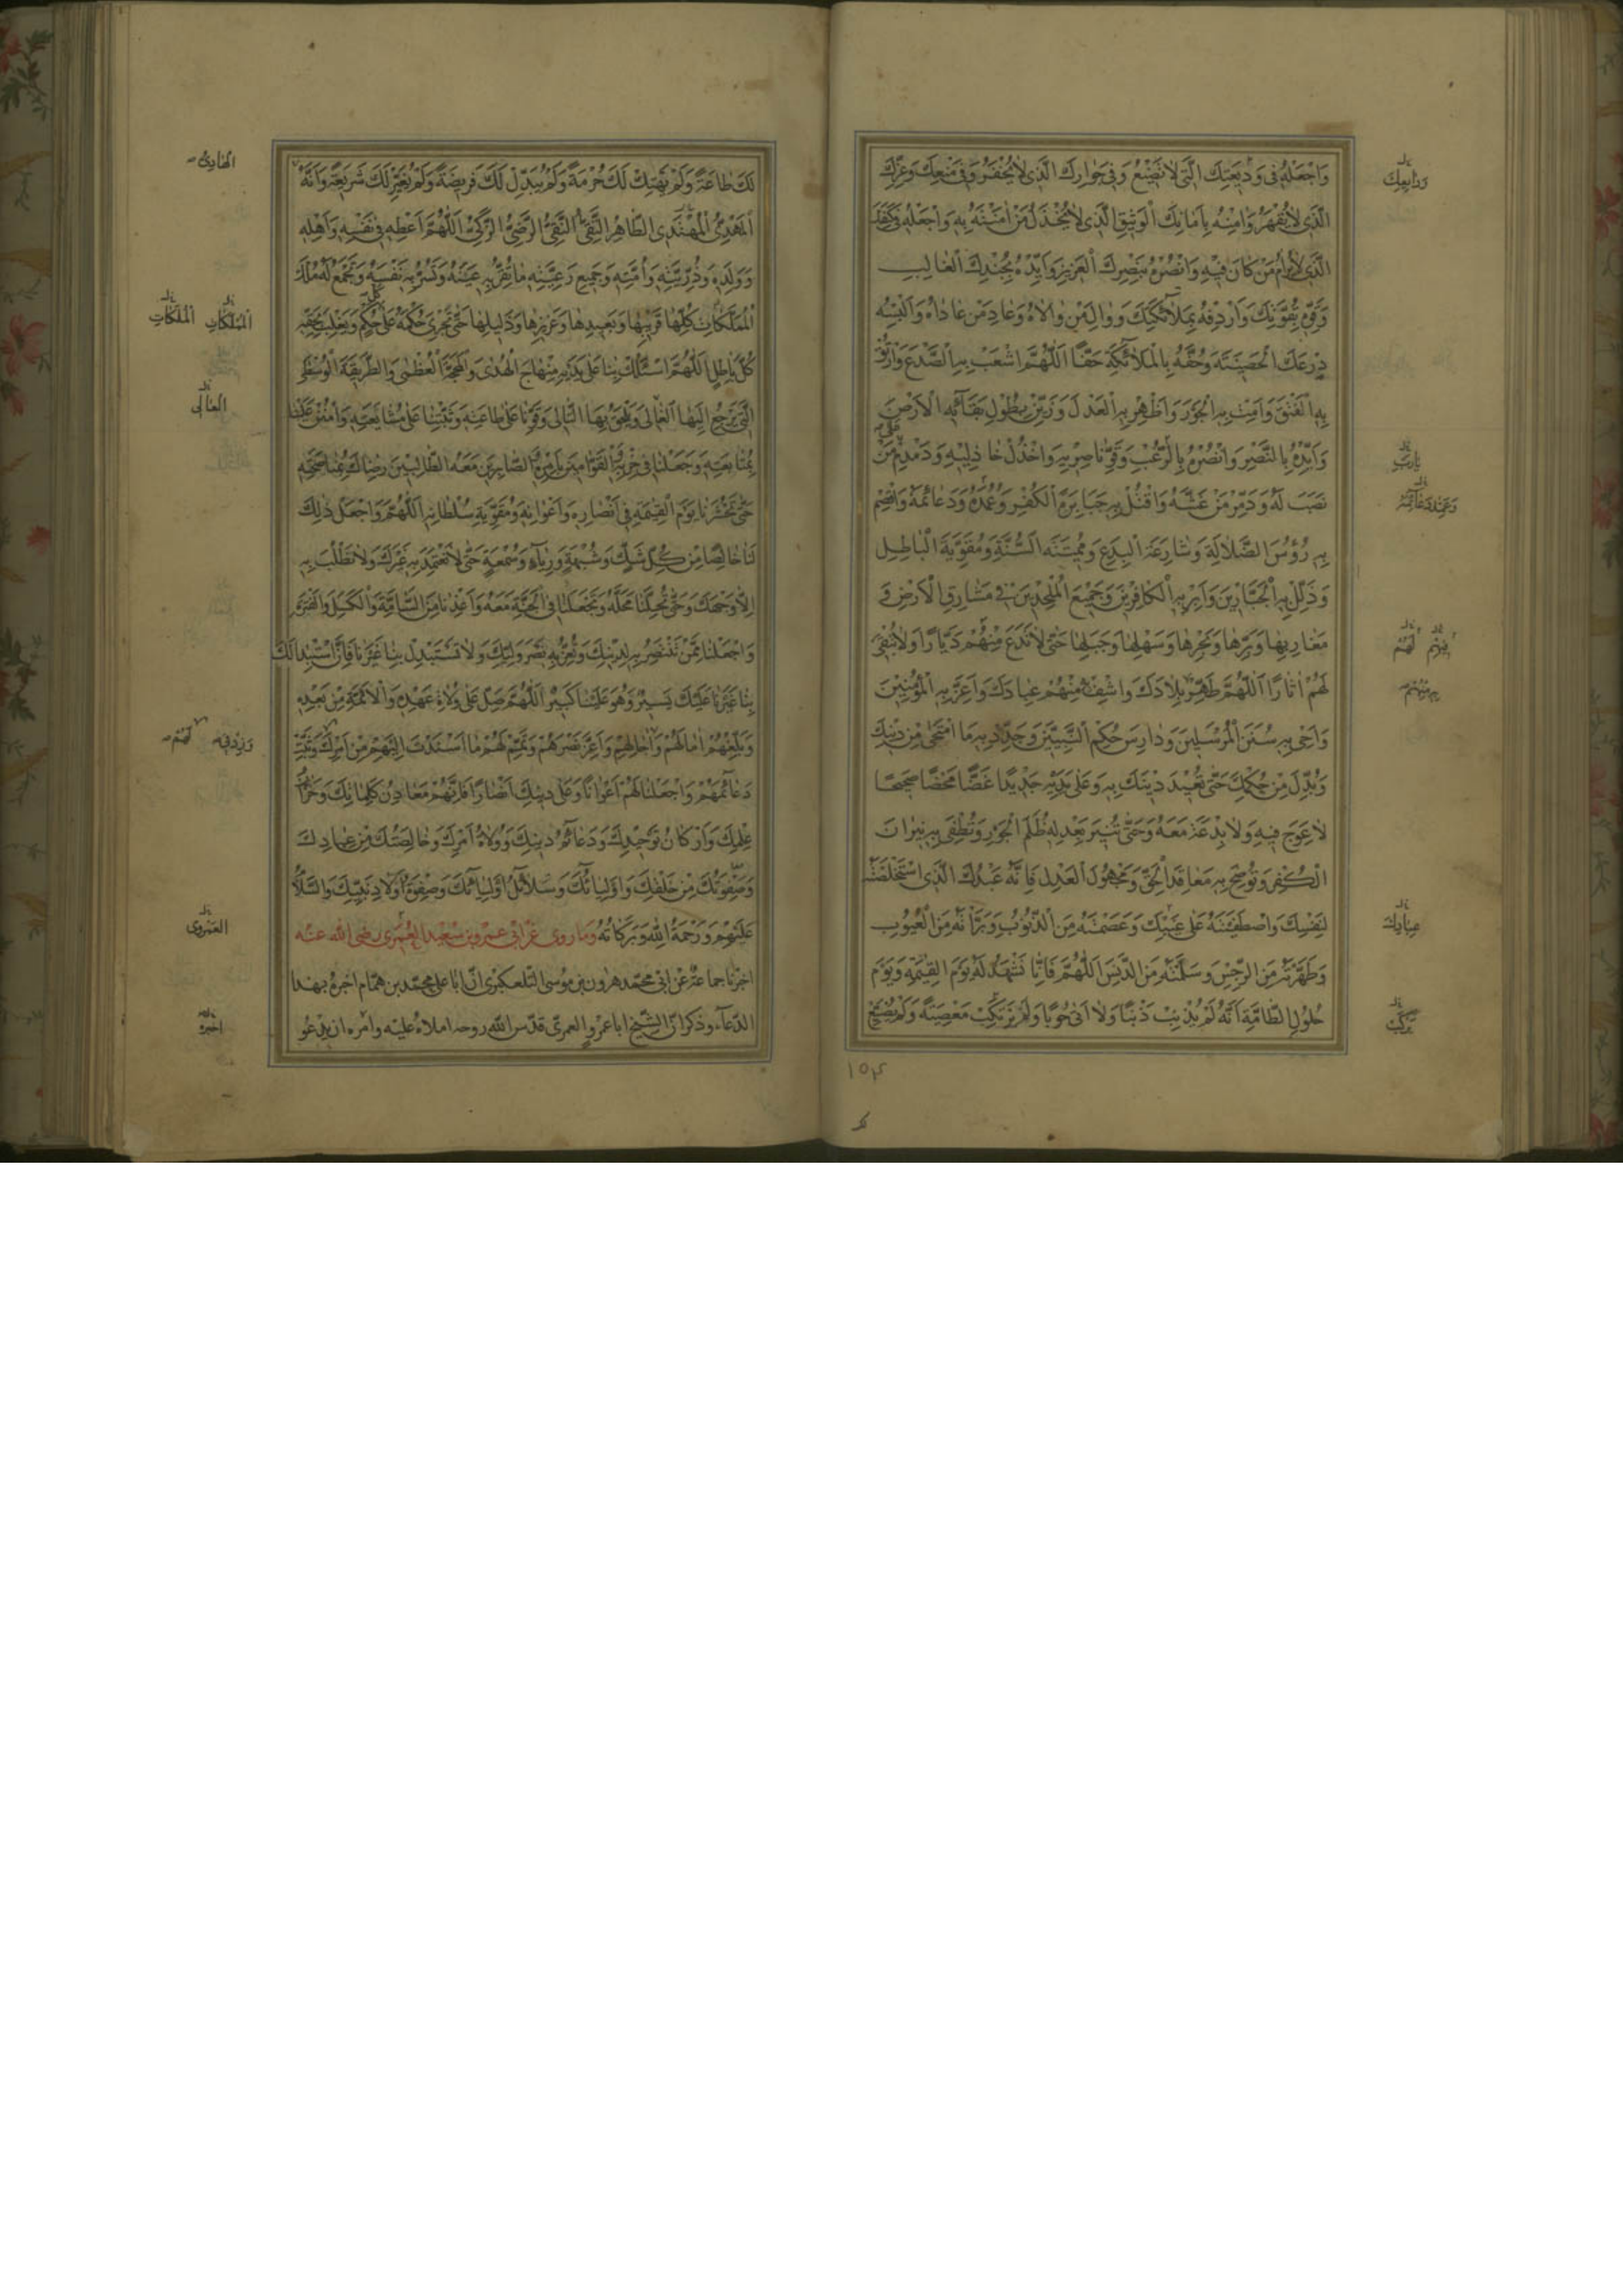 وَاجْعَلْهُ فِى وَدِيعَتِكَ الَّتِى لَا تَضِيعُ وَفِى جِوَارِكَ الَّذِى لَا يُخْفَرُ وَفِى مَنْعِكَ وَعِزِّكَ
الَّذِى لَا يُقْهَرُ وَآمِنْهُ بِاَمَانِكَ الْوَثِيقِ الَّذِى لَا يُخْذَلُ مَنْ آمَنْتَهُ بِهِ وَاجْعَلْهُ فِى كَنَفِكَ
الَّذِى لَا يُرَامُ مَنْ كَانَ فِيهِ وَانْصُرْهُ بِنَصْرِكَ الْعَزِيزِ وَاَيِّدْهُ بِجُنْدِكَ الْغَالِبِ
وَقَوِّهِ بِقُوَّتِكَ وَاَرْدِفْهُ بِمَلَائِكَتِكَ وَوَالِ مَنْ وَالَاهُ وَعَادِ مَنْ عَادَاهُ وَاَلْبِسْهُ
دِرْعَكَ الْحَصِينَةَ وَحُفَّهُ بِالْمَلَائِكَةِ حَفًّا اَللّٰهُمَّ اشْعَبْ بِهِ الصَّدْعَ وَارْتُقْ
بِهِ الْفَتْقَ وَاَمِتْ بِهِ الْجَوْرَ وَاَظْهِرْ بِهِ الْعَدْلَ وَزَيِّنْ بِطُولِ بَقَائِهِ الْاَرْضَ
وَاَيِّدْهُ بِالنَّصْرِ وَانْصُرْهُ بِالرُّعْبِ وَقَوِّ نَاصِرِيهِ وَاخْذُلْ خَاذِلِيهِ وَدَمْدِمْ مَنْ
نَصَبَ لَهُ وَدَمِّرْ مَنْ غَشَّهُ وَاقْتُلْ بِهِ جَبَابِرَةَ الْكُفْرِ وَعُمُدَهُ وَدَعَائِمَهُ وَاقْصِمْ
بِهِ رُؤُسَ الضَّلَالَةِ وَشَارِعَةَ الْبِدَعِ وَمُمِيتَةَ السُّنَّةِ وَمُقَوِّيَةَ الْبَاطِلِ
وَذَلِّلْ بِهِ الْجَبَّارِينَ وَاَبِرْ بِهِ الْكَافِرِينَ وَجَمِيعَ الْمُلْحِدِينَ فِى مَشَارِقِ الْاَرْضِ وَ
مَغَارِبِهَا وَبَرِّهَا وَبَحْرِهَا وَسَهْلِهَا وَجَبَلِهَا حَتَّى لَا تَدَعَ مِنْهُمْ دَيَّارًا وَلَا تُبْقِىَ
لَهُمْ آثَارًا اَللّٰهُمَّ طَهِّرْ بِلَادَكَ وَاشْفِ مِنْهُمْ عِبَادَكَ وَاَعِزَّ بِهِ الْمُؤْمِنِينَ
وَاَحْىِ بِهِ سُنَنَ الْمُرْسَلِينَ وَدَارِسَ حُكْمِ النَّبِيِّينَ وَجَدِّدْ بِهِ مَا امْتَحَى مِنْ دِينِكَ
وَبُدِّلَ مِنْ حُكْمِكَ حَتَّى تُعِيدَ دِينَكَ بِهِ وَعَلَى يَدَيْهِ جَدِيدًا غَضًّا مَحْضًا صَحِيحًا
لَا عِوَجَ فِيهِ وَلَا بِدْعَةَ مَعَهُ وَحَتَّى تُنِيرَ بِعَدْلِهِ ظُلَمَ الْجَوْرِ وَتُطْفِىَ بِهِ نِيرَانَ
الْكُفْرِ وَتُوضِحَ بِهِ مَعَاقِدَ الْحَقِّ وَمَجْهُولَ الْعَدْلِ فَاِنَّهُ عَبْدُكَ الَّذِى اسْتَخْلَصْتَهُ
لِنَفْسِكَ وَاصْطَفَيْتَهُ عَلَى غَيْبِكَ وَعَصَمْتَهُ مِنَ الذُّنُوبِ وَبَرَّأْتَهُ مِنَ الْعُيُوبِ
وَطَهَّرْتَهُ مِنَ الرِّجْسِ وَسَلَّمْتَهُ مِنَ الدَّنَسِ اَللّٰهُمَّ فَاِنَّا نَشْهَدُ لَهُ يَوْمَ الْقِيٰمَةِ وَيَوْمَ
حُلُولِ الطَّامَّةِ اَنَّهُ لَمْ يُذْنِبْ ذَنْبًا وَلَا اَتَى حُوبًا وَلَمْ يَرْتَكِبْ مَعْصِيَةً وَلَمْ يُضَيِّعْ
۱۵۴
لَكَ طَاعَةً وَلَمْ يَهْتِكْ لَكَ حُرْمَةً وَلَمْ يُبَدِّلْ لَكَ فَرِيضَةً وَلَمْ يُغَيِّرْ لَكَ شَرِيعَةً وَاَنَّهُ
الْمَهْدِىُّ الْمُهْتَدِى الطَّاهِرُ التَّقِىُّ النَّقِىُّ الرَّضِىُّ الزَّكِىُّ اَللّٰهُمَّ اَعْطِهِ فِى نَفْسِهِ وَاَهْلِهِ
وَوَلَدِهِ وَذُرِّيَّتِهِ وَاُمَّتِهِ وَجَمِيعِ رَعِيَّتِهِ مَا تُقِرُّ بِهِ عَيْنَهُ وَتَسُرُّ بِهِ نَفْسَهُ وَتَجْمَعُ لَهُ مُلْكَ
الْمُمَلَّكَاتِ كُلِّهَا قَرِيبِهَا وَبَعِيدِهَا وَعَزِيزِهَا وَذَلِيلِهَا حَتَّى تُجْرِىَ حُكْمَهُ عَلَى كُلِّ حُكْمٍ وَيَغْلِبَ بِحَقِّهِ
كُلَّ بَاطِلٍ اَللّٰهُمَّ اسْلُكْ بِنَا عَلَى يَدَيْهِ مِنْهَاجَ الْهُدَى وَالْمَحَجَّةَ الْعُظْمَى وَالطَّرِيقَةَ الْوُسْطَى
الَّتِى يَرْجِعُ اِلَيْهَا الْغَالِى وَيَلْحَقُ بِهَا التَّالِى وَقَوِّنَا عَلَى طَاعَتِهِ وَثَبِّتْنَا عَلَى مُشَايَعَتِهِ وَامْنُنْ عَلَيْنَا
بِمُتَابَعَتِهِ وَجَعَلْنَا فِى حِزْبِهِ الْقَوَّامِينَ بِاَمْرِهِ الصَّابِرِينَ مَعَهُ الطَّالِبِينَ رِضَاكَ بِمُنَاصَحَتِهِ
حَتَّى تَحْشُرَنَا يَوْمَ الْقِيٰمَةِ فِى اَنْصَارِهِ وَاَعْوَانِهِ وَمُقَوِّيَةِ سُلْطَانِهِ اَللّٰهُمَّ وَاجْعَلْ ذٰلِكَ
لَنَا خَالِصًا مِنْ كُلِّ شَكٍّ وَشُبْهَةٍ وَرِيَاءٍ وَسُمْعَةٍ حَتَّى لَا نَعْتَمِدَ بِهِ غَيْرَكَ وَلَا نَطْلُبَ بِهِ
اِلَّا وَجْهَكَ وَحَتَّى تُحِلَّنَا مَحَلَّهُ وَتَجْعَلَنَا فِى الْجَنَّةِ مَعَهُ وَاَعِذْنَا مِنَ السَّامَةِ وَالْكَسَلِ وَالْفَتْرَةِ
وَاجْعَلْنَا مِمَّنْ تَنْتَصِرُ بِهِ لِدِينِكَ وَتُعِزُّ بِهِ نَصْرَ وَلِيِّكَ وَلَا تَسْتَبْدِلْ بِنَا غَيْرَنَا فَاِنَّ اسْتِبْدَالَكَ
بِنَا غَيْرَنَا عَلَيْكَ يَسِيرٌ وَهُوَ عَلَيْنَا كَبِيرٌ اَللّٰهُمَّ صَلِّ عَلَى وُلَاةِ عَهْدِهِ وَالْاَئِمَّةِ مِنْ بَعْدِهِ
وَبَلِّغْهُمْ آمَالَهُمْ وَآجَالَهُمْ وَاَعِزَّ نَصْرَهُمْ وَتَمِّمْ لَهُمْ مَا اَسْنَدْتَ اِلَيْهِمْ مِنْ اَمْرِكَ وَثَبِّتْ
دَعَائِمَهُمْ وَاجْعَلْنَا لَهُمْ اَعْوَانًا وَعَلَى دِينِكَ اَنْصَارًا فَاِنَّهُمْ مَعَادِنُ كَلِمَاتِكَ وَخُزَّانُ
عِلْمِكَ وَاَرْكَانُ تَوْحِيدِكَ وَدَعَائِمُ دِينِكَ وَوُلَاةُ اَمْرِكَ وَخَالِصَتُكَ مِنْ عِبَادِكَ
وَصَفْوَتُكَ مِنْ خَلْقِكَ وَاَوْلِيَائُكَ وَسَلَائِلُ اَوْلِيَائِكَ وَصَفْوَةُ اَوْلَادِ نَبِيِّكَ وَالسَّلَامُ
عَلَيْهِمْ وَرَحْمَةُ اللّٰهِ وَبَرَكَاتُهُ وَمَا رُوِىَ عَنْ اَبِى عَمْرِو بْنِ سَعِيدٍ الْعُمَرِى رضى الله عنه
اخبرنا جماعة عن ابى محمد هرون بن موسى التلعكبرى انّ ابا على محمد بن همّام اخبره بهذا
الدّعاء وذكر انّ الشّيخ ابا عمرو العمرى قدّس الله روحه املاه عليه وامره ان يدعو